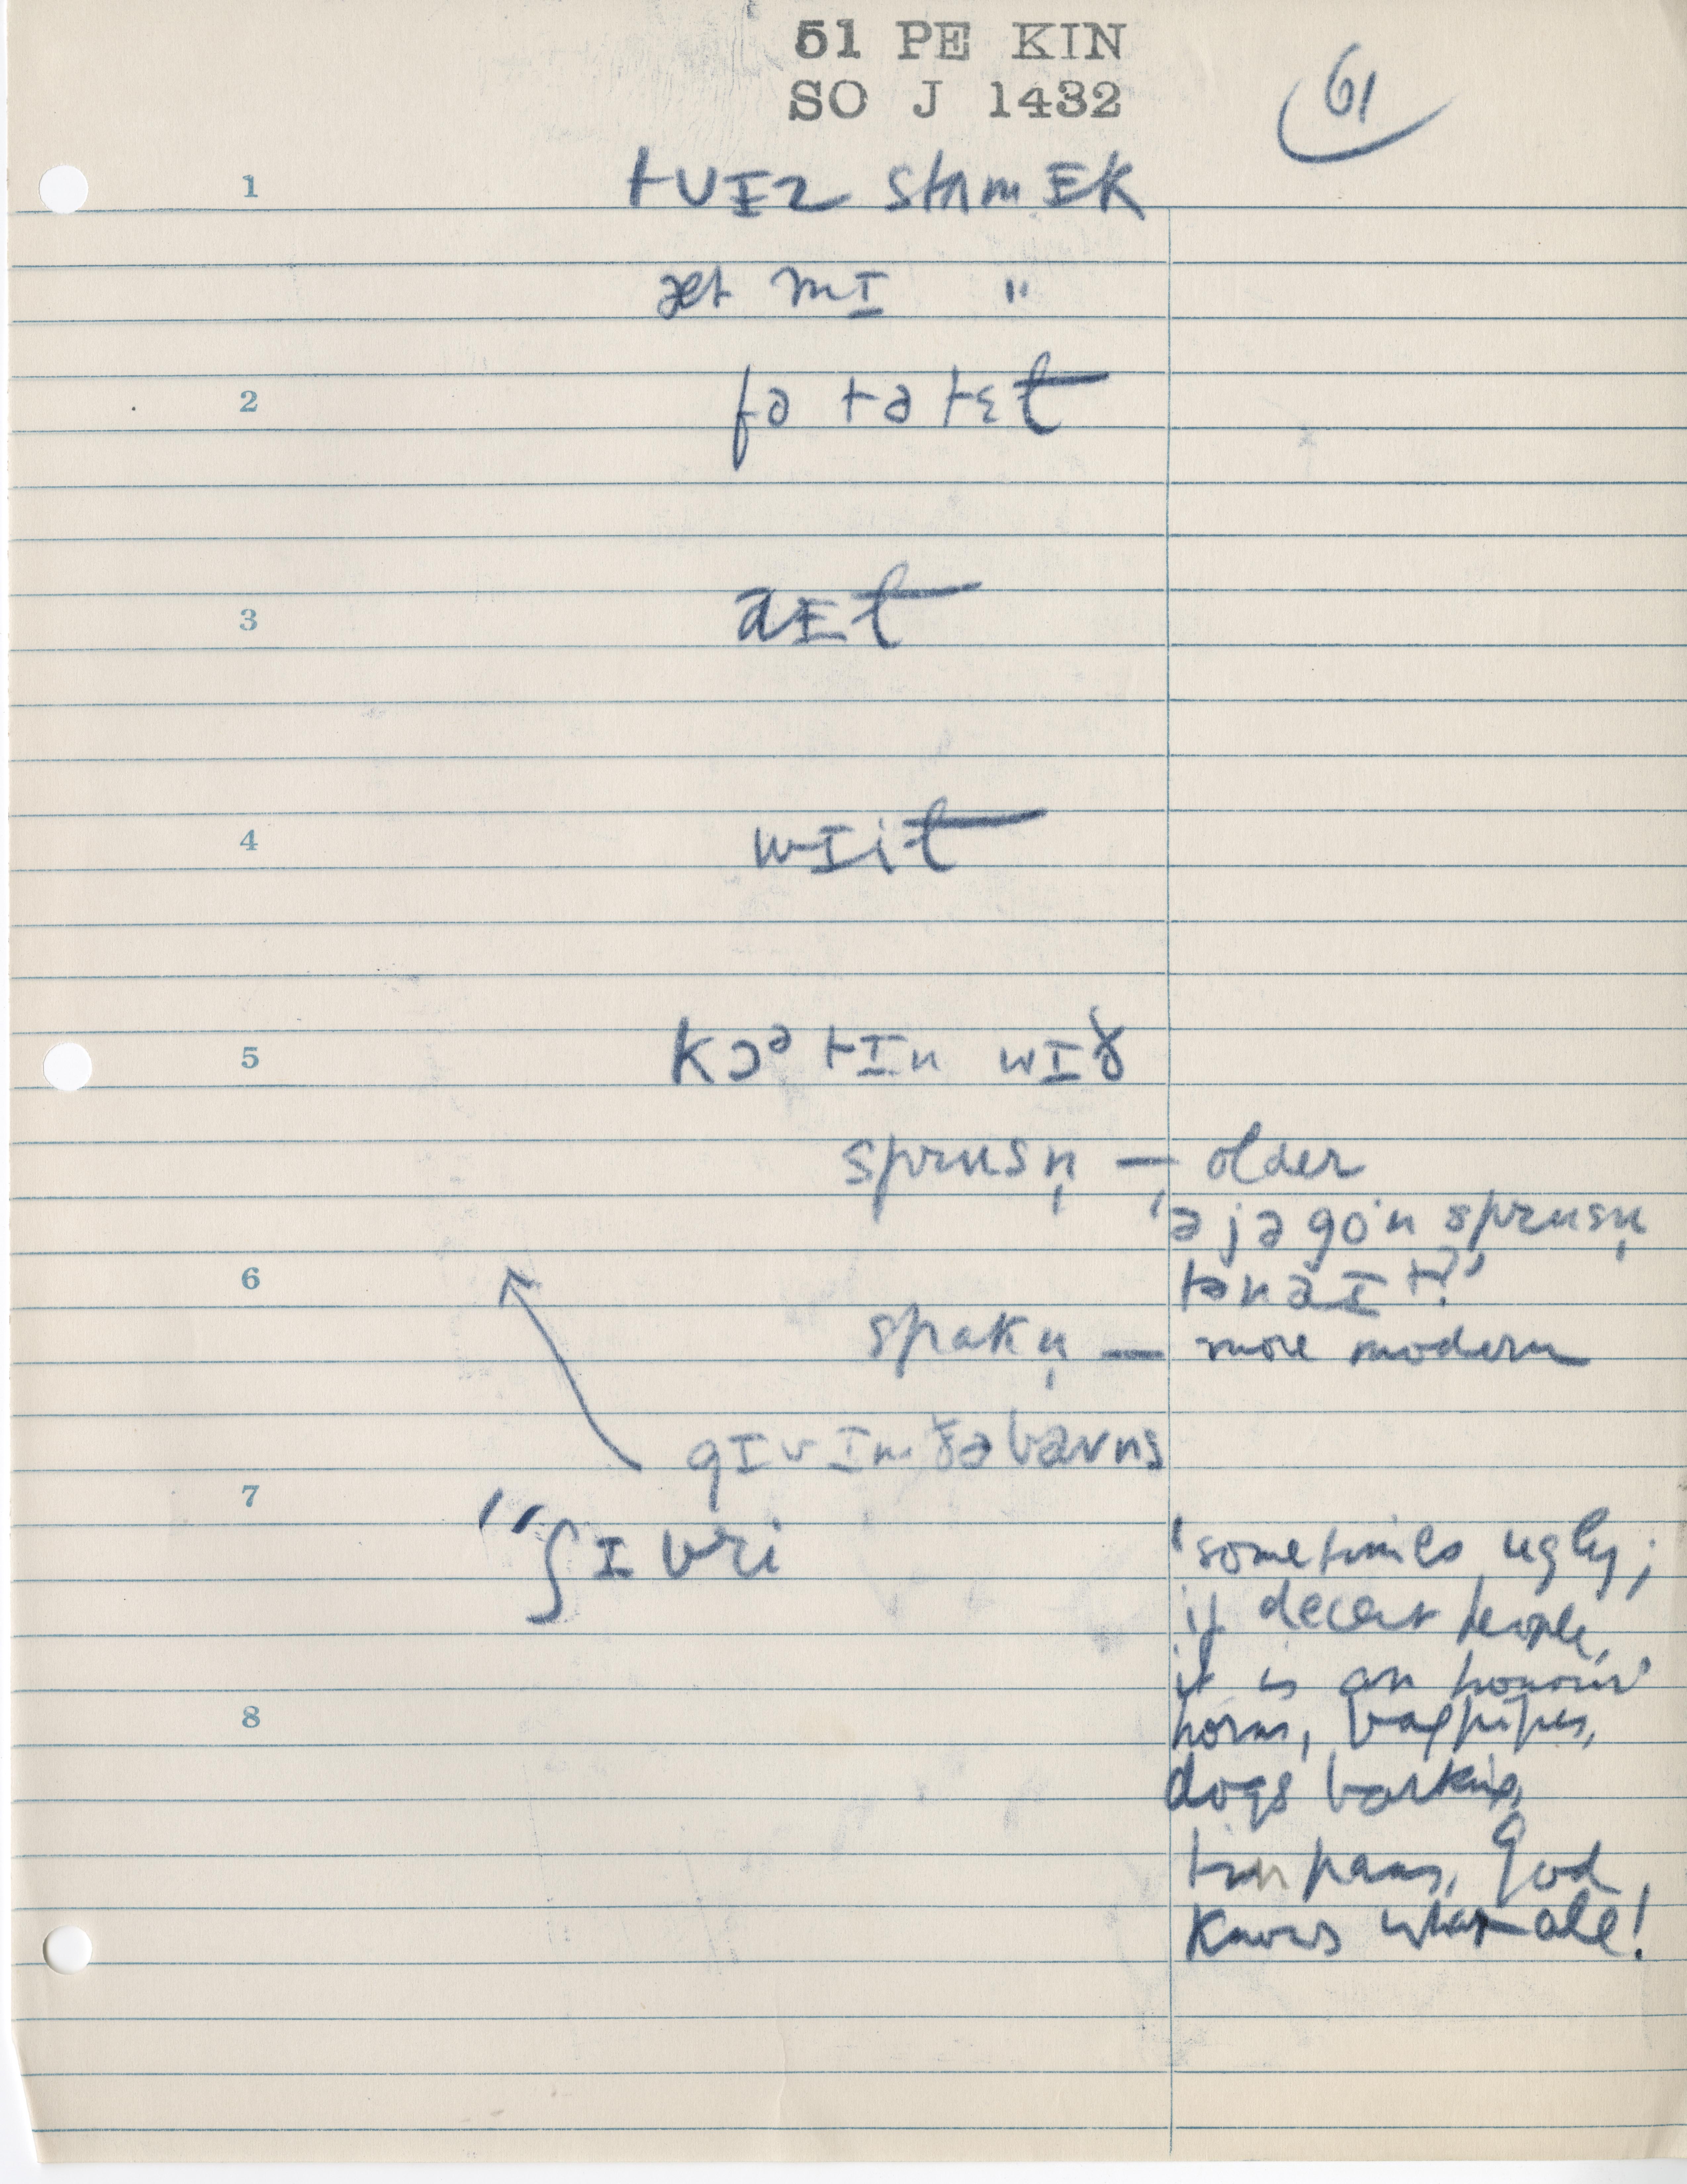 51 PE KIN
SO J 1432
61
1
tu ɪz stʌmɪk
æt mɪ "
2
fə tə tɛt
3
aɪt
4
wɪit
5
kɔᵊtɪn wɪð
sprusn̩ — older
'ə jə go·n sprusn̩
tənaɪt?'
6
spakn̩ — more modern
gɪvɪn ðə bavns
7
"ʃɪvri
'sometimes ugly;
if decent people,
it is an honour'
8
horns, bagpipes,
dogs barking,
tin pans, God
knows what all!